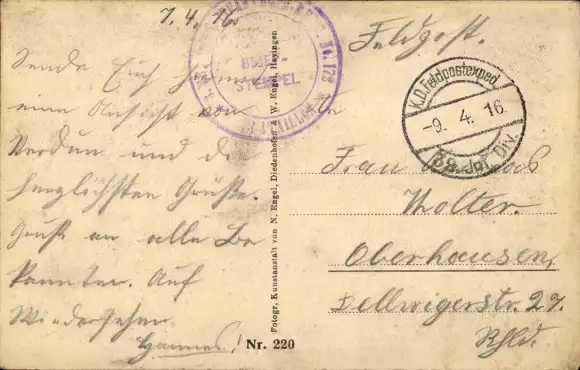 7.4.16.
Sende Euch
eine Ansicht von
Verdun und die
herzlichsten Grüße.
Gruß an alle Be
kannten. Auf
Wiedersehen.
Hannes!
BRIEF-
STEMPEL
Nr. 173
Photogr. Kunstanstalt von N. Engel, Diedenhofen & W. Engel, Hayingen
Nr. 220
Feldpost.
K.D. Feldpostexped.
-9. 4. 16
Inf. Div.
Frau
Wolter.
Oberhausen,
Dellwigerstr. 27.
Rhld.